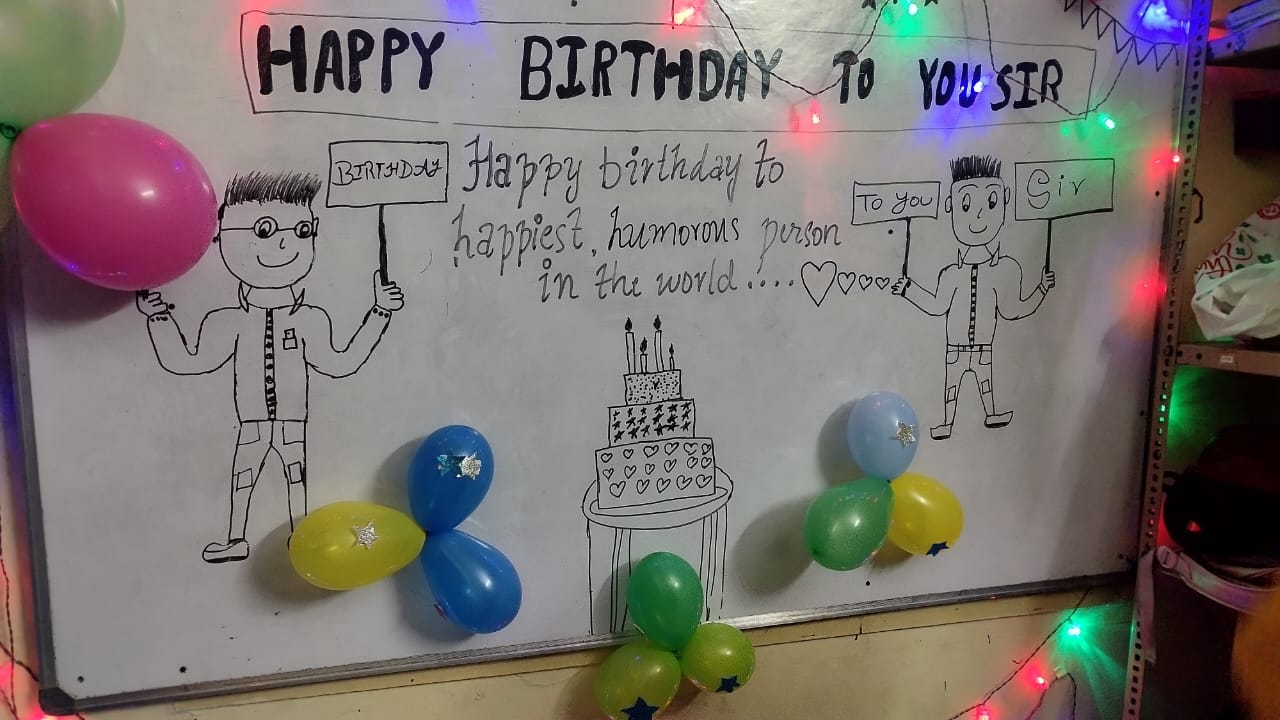 HAPPY BIRTHDAY TO YOU SIR
BIRTHDAY
Happy birthday to
happiest, humorous person
in the world....
To you
Sir